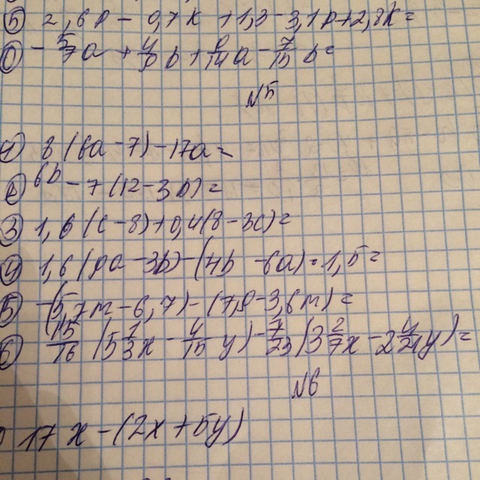 5) 2,6p - 0,7k + 1,3 - 3,1p + 2,8k =
6) -5/7a + 4/5b + /14a - 7/15b =
N5
1) 8(6a-7)-17a=
2) 6b-7(12-3b)=
3) 1,6(c-8)+0,4(8-3c)=
4) 1,6(a-3b)-(4b-6a)·1,5=
5) (5,7m-6,7)-(7,8-3,6m)=
6) 15/16(5 1/3x-4/15y)-7/23(3 2/7x-2 y)=
N6
17x-(2x+5y)